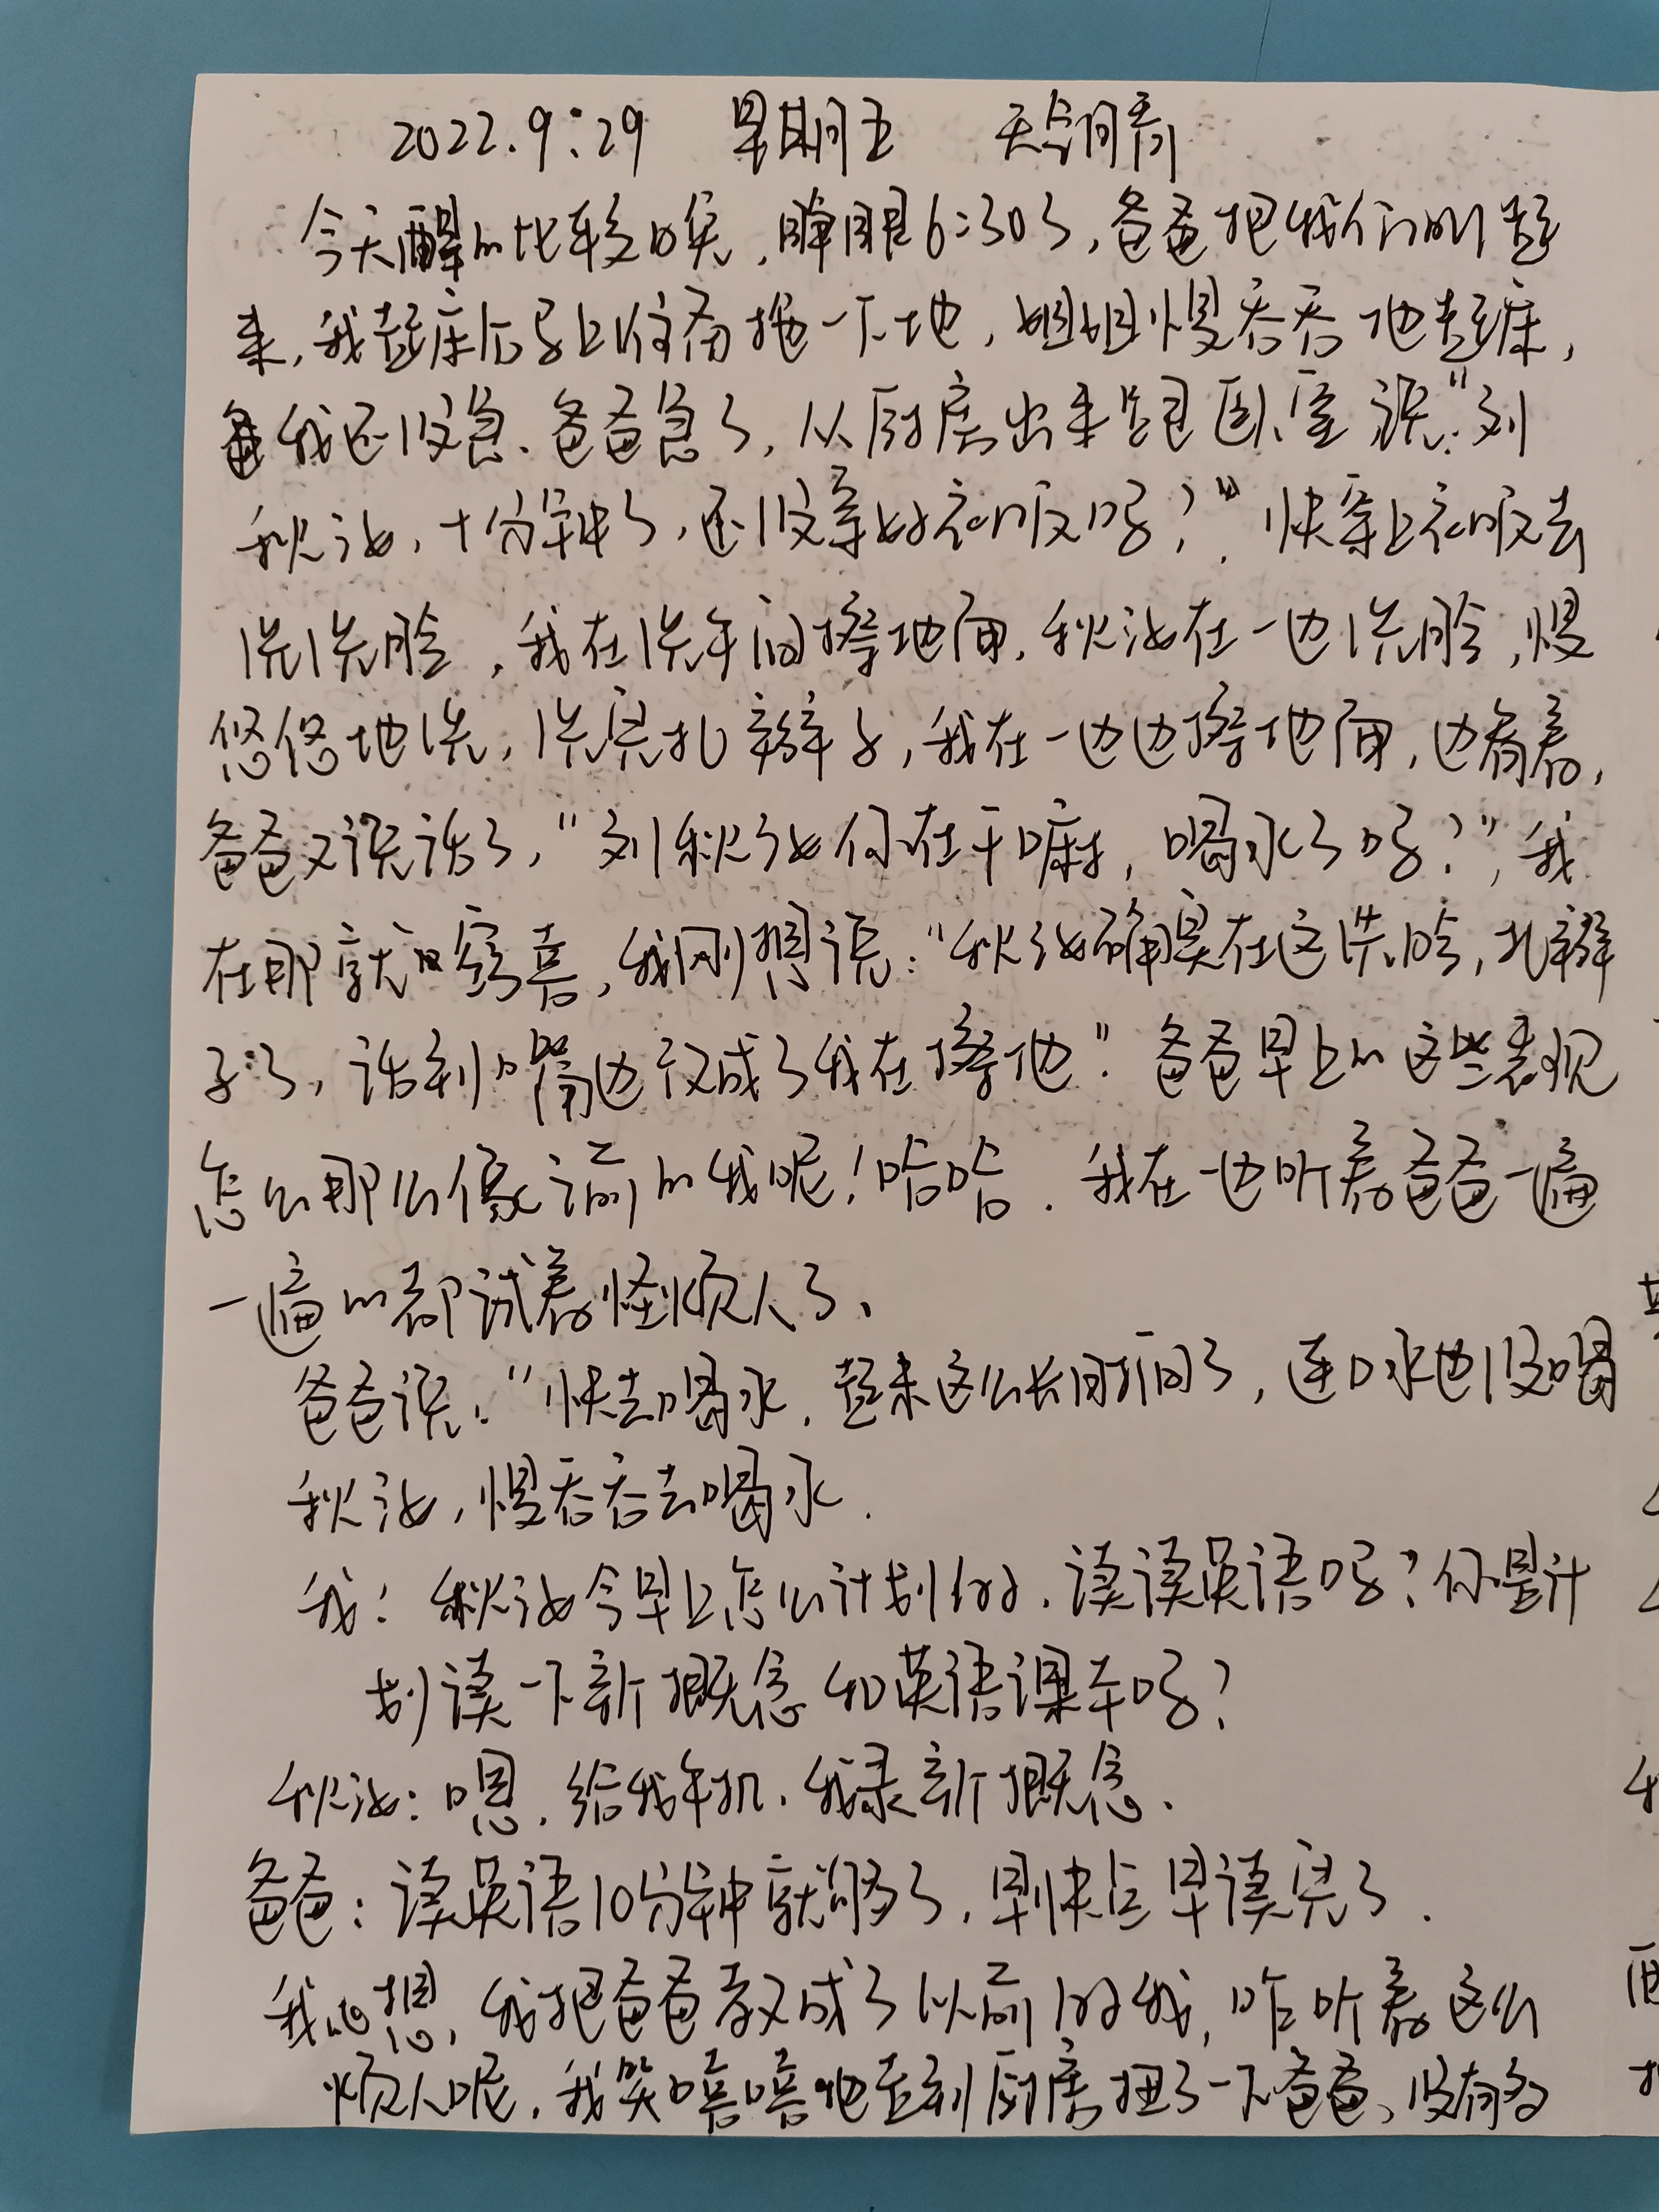 2022.9.29 星期五 天气阴雨
今天醒的比较晚,睁眼6:30了,爸爸把我们叫起
来,我起床后马上准备拖一下地,姐姐慢吞吞地起床,
我还没急、爸爸急了,从厨房出来跑到卧室说:"刘
秋汝,十分钟了,还没穿好衣服吗?"快穿上衣服去
洗洗脸,我在洗手间擦地面,秋汝在一边洗脸,慢
悠悠地洗,洗完扎辫子,我在一边边擦地面,边看着,
爸爸又说话了,"刘秋汝你在干嘛,喝水了吗?",我
在那就窃喜,我刚想说:"秋汝确实在这洗脸,扎辫
子了,话到嘴边改成了我在擦地"。爸爸早上的这些表现
怎么那么像之前的我呢!哈哈.我在一边听着爸爸一遍
一遍的都试着怪烦人了、
爸爸说:"快去喝水,起来这么长时间了,连口水也没喝
秋汝,慢吞吞去喝水.
我:秋汝今早上怎么计划的、读读英语吗?你是计
划读一下新概念和英语课本吗?
秋汝:嗯,给我手机,我录新概念、
爸爸:读英语10分钟就够了,早快点早读完了.
我心想,我把爸爸教成了以前的我,咋听着这么
烦人呢,我笑嘻嘻地走到厨房扭了一下爸爸、没有多